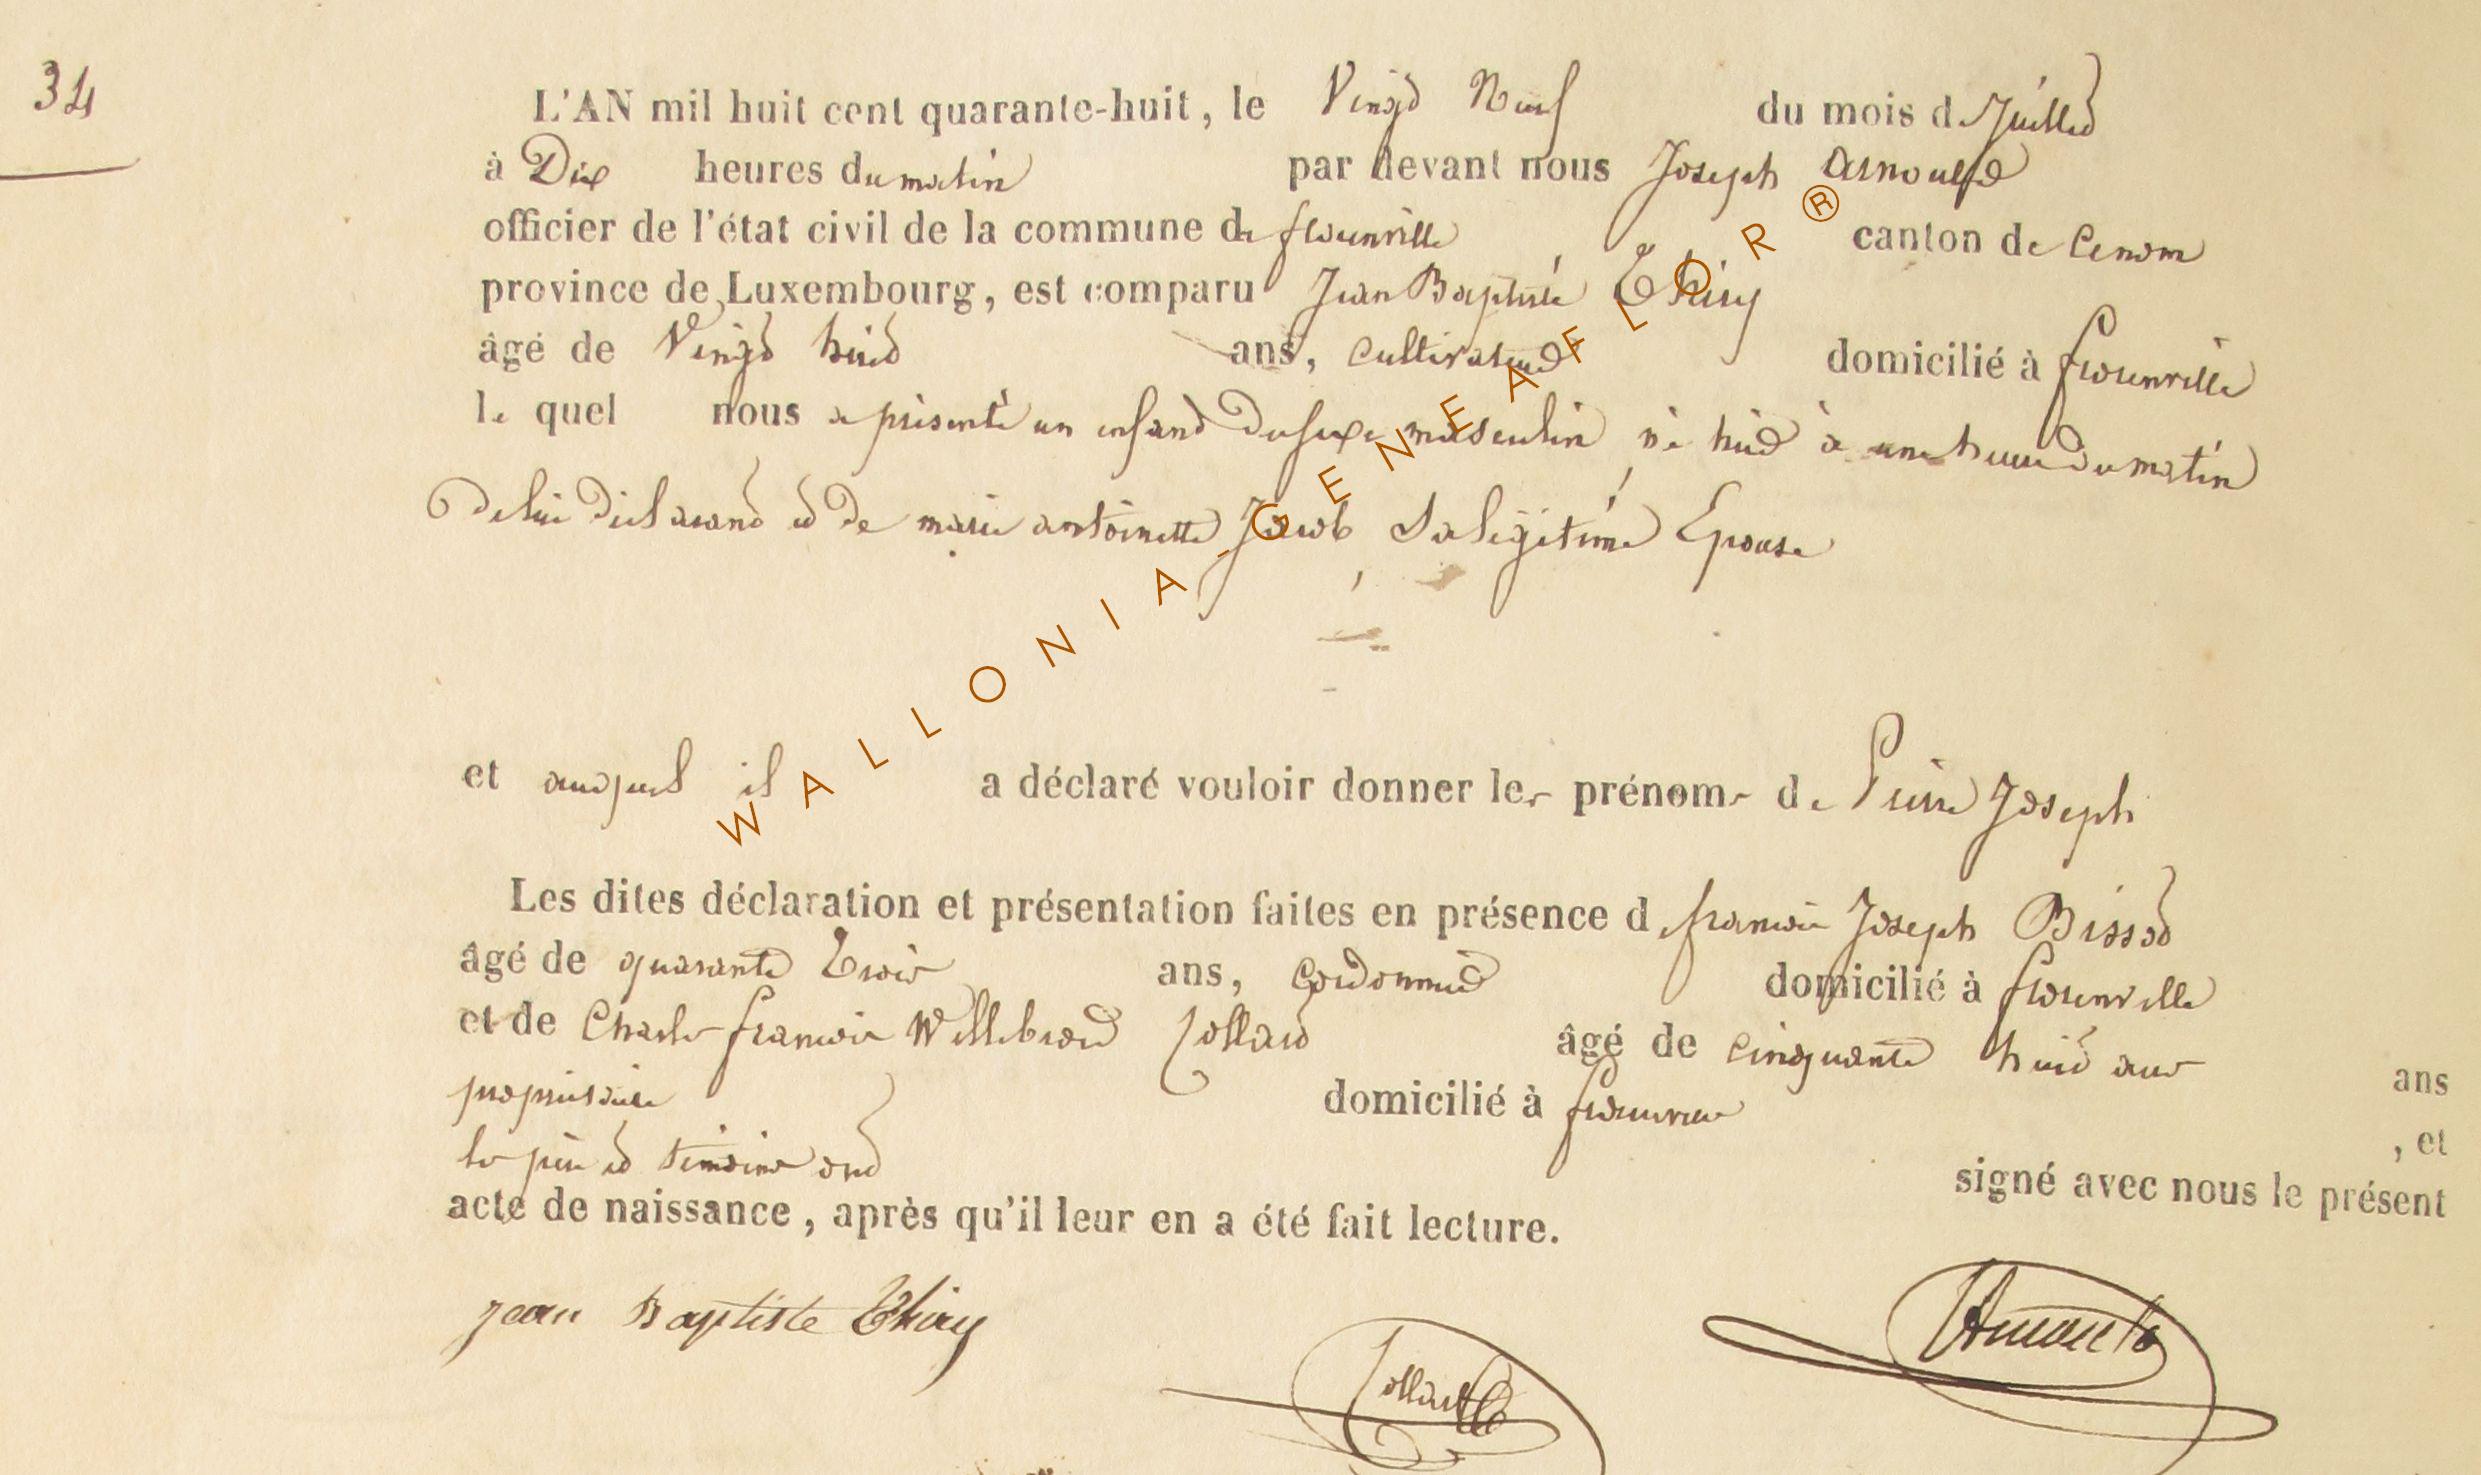 34
L'AN mil huit cent quarante-huit, le Vingt Neuf du mois de Juillet
à Dix heures du matin par devant nous Joseph Arnould
officier de l'état civil de la commune de florenville canton de
province de Luxembourg, est comparu Jean Baptiste Thiry
âgé de Vingt huit ans, cultivateur domicilié à florenville
le quel nous a présenté un enfant du sexe masculin né hier à une heure du matin
de lui déclarant et de marie antoinette Jacob Sa légitime Epouse
et auquel il a déclaré vouloir donner les prénoms de Pierre Joseph
Les dites déclaration et présentation faites en présence de françois Joseph Bissot
âgé de quarante trois ans, cordonnier domicilié à florenville
et de Charles françois Willebrord Collard âgé de cinquante huit ans ans
propriétaire domicilié à , et
les père et témoins ont signé avec nous le présent
acte de naissance, après qu'il leur en a été fait lecture.
Jean Baptiste Thiry
Collard
WALLONIA-GENEAFLOR®